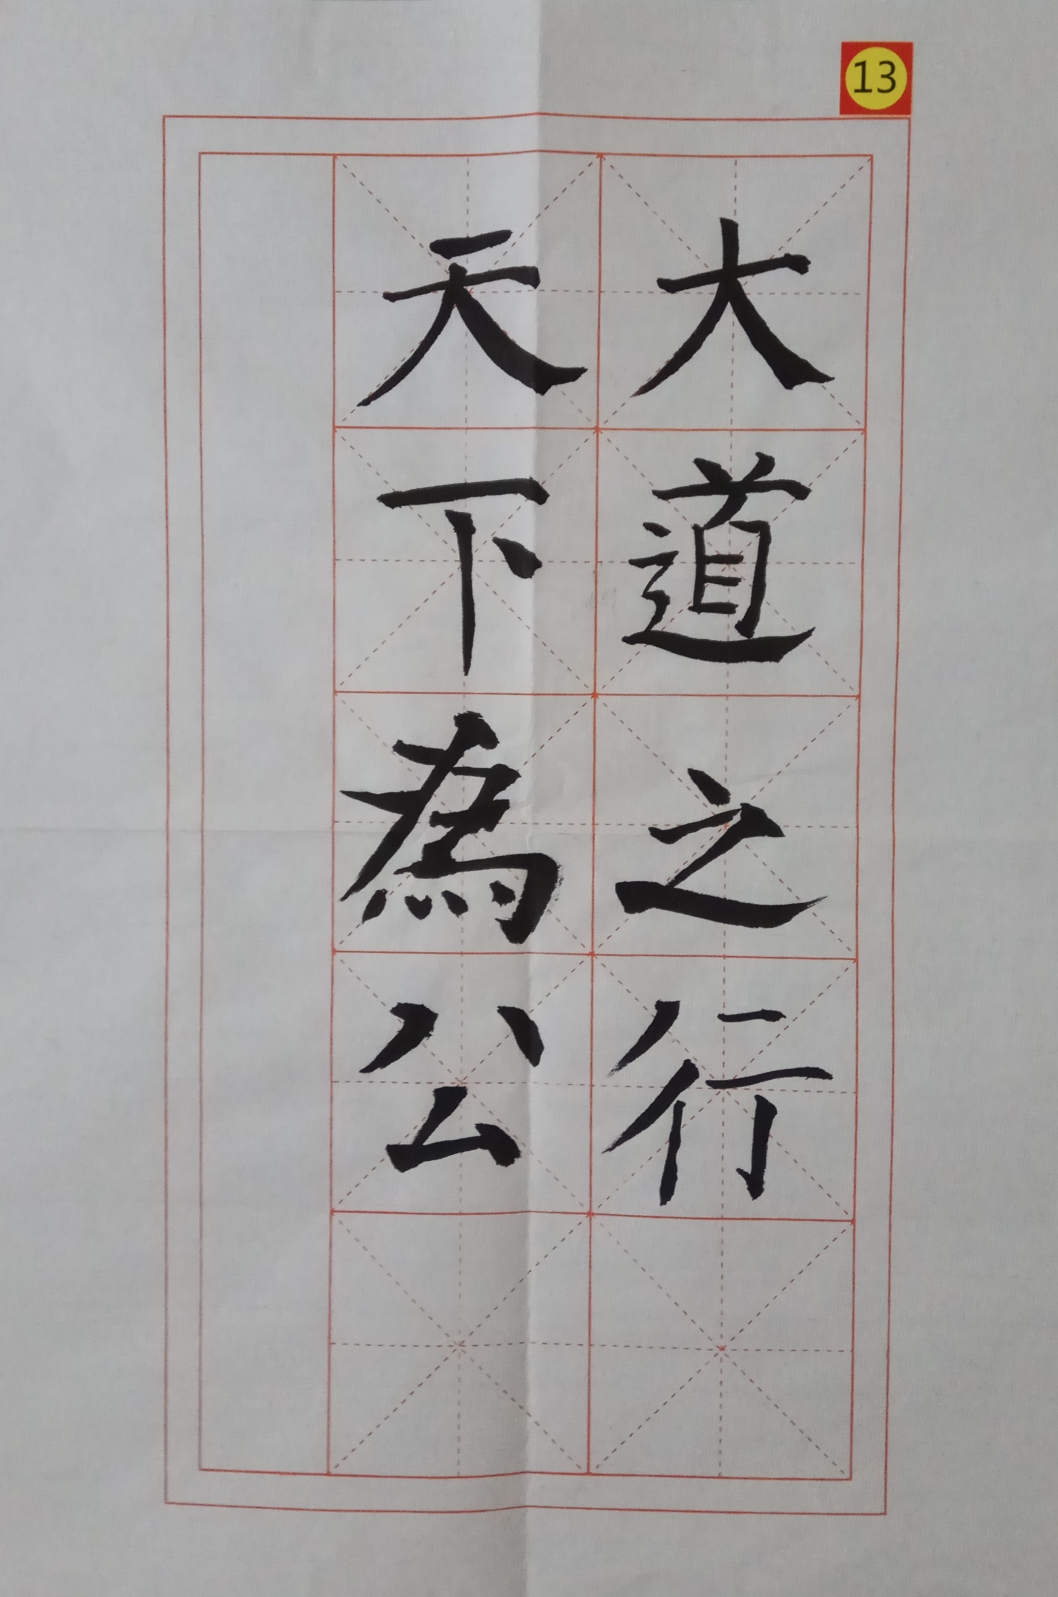 13
大道之行
天下為公